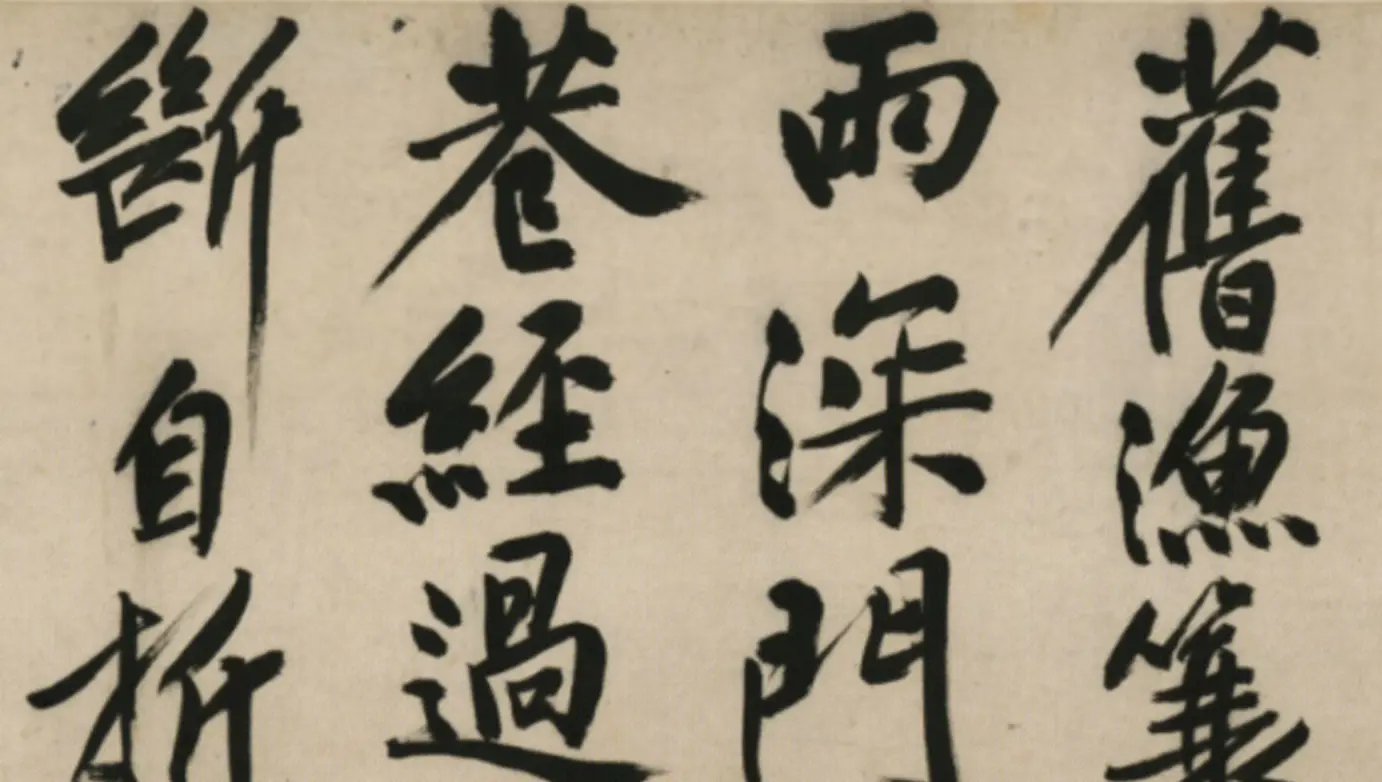 舊漁蓑
雨深門
巷經過
斷自折